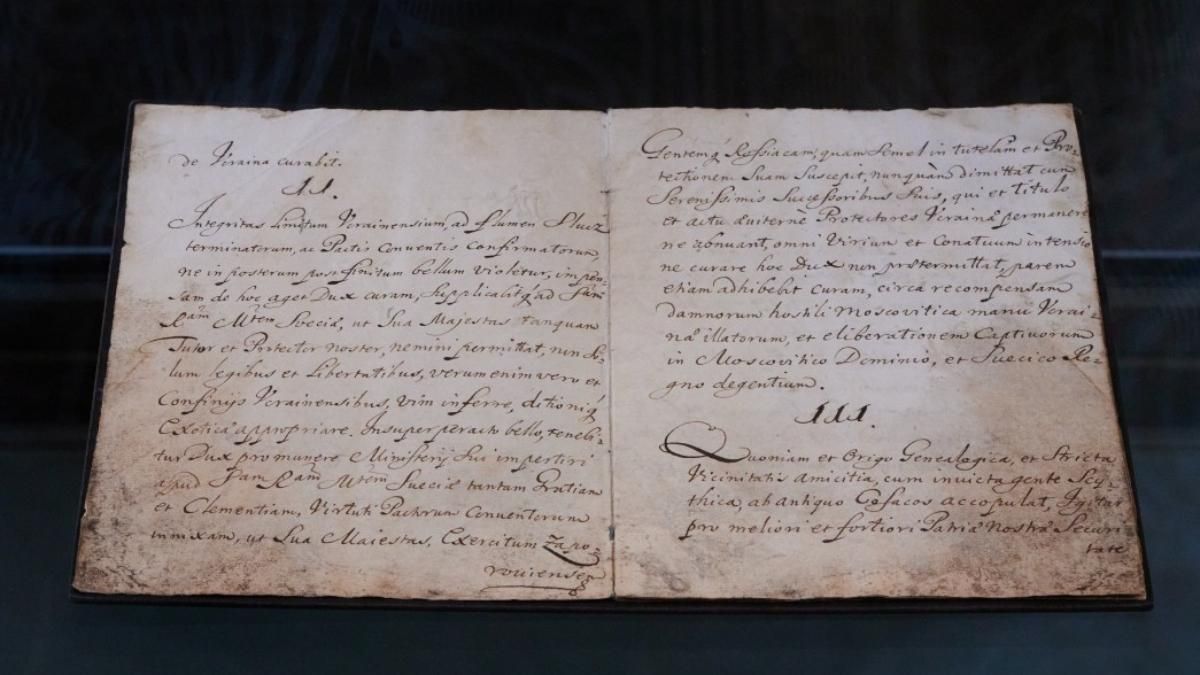 de Vcraina curabit.
II.
Integritas limitum Vcrainensium, ad flumen Sluiz
terminatorum, ac Pactis Conuentis confirmatorum,
ne in posterum post finitum bellum violetur, impen-
sam de hoc aget Dux curam, supplicabitq́ ad Sam
Ram Mtem Sueciæ, ut Sua Majestas tanquam
Tutor et Protector noster, nemini permittat, non so-
lum legibus et Libertatibus, verum enim vero et
Confinijs Vcrainensibus, vim inferre, ditioniq́
Exoticæ appropriare. Insuper peracto bello, tenebi-
tur Dux pro munere Ministerij sui impertiri
apud Sam Ram Mtem Sueciæ tantam Gratiam
et Clementiam, Virtuti Pactorum Conuentorum
innixam, ut Sua Maiestas, Exercitum Zapo-
rouiensem
Gentemq́ Rossiacam, quam semel in tutelam et Pro-
tectionem Suam Suscepit, nunquam dimittat cum
Serenissimis Successoribus Suis, qui et titulo
et actu æuiternè Protectores Vcrainæ permanere
ne abnuant, omni Virium et Conatuum intensio
ne curare hoc Dux non prætermittat, parem
etiam adhibebit curam, circa recompensam
damnorum hostili Moscovitica manu Vcrai-
næ illatorum, et eliberationem Captiuorum
in Moscovitico Dominio, et Suecico Re-
gno degentium.
III.
Quoniam et Origo Genealogica, et Stricta
Vicinitatis amicitia, cum invicta gente Scy-
thica, ab antiquo Cosacos accopulat, Igitur
pro meliori et fortiori Patriæ Nostræ Securi
tate